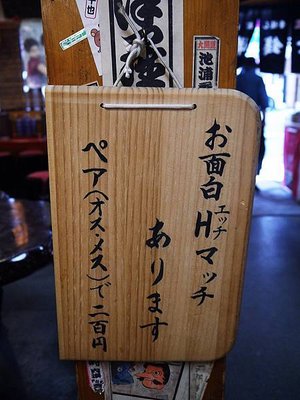 お面白Hマッチ
エッチ
あります
ペア(オス・メス)で二百円
大開運